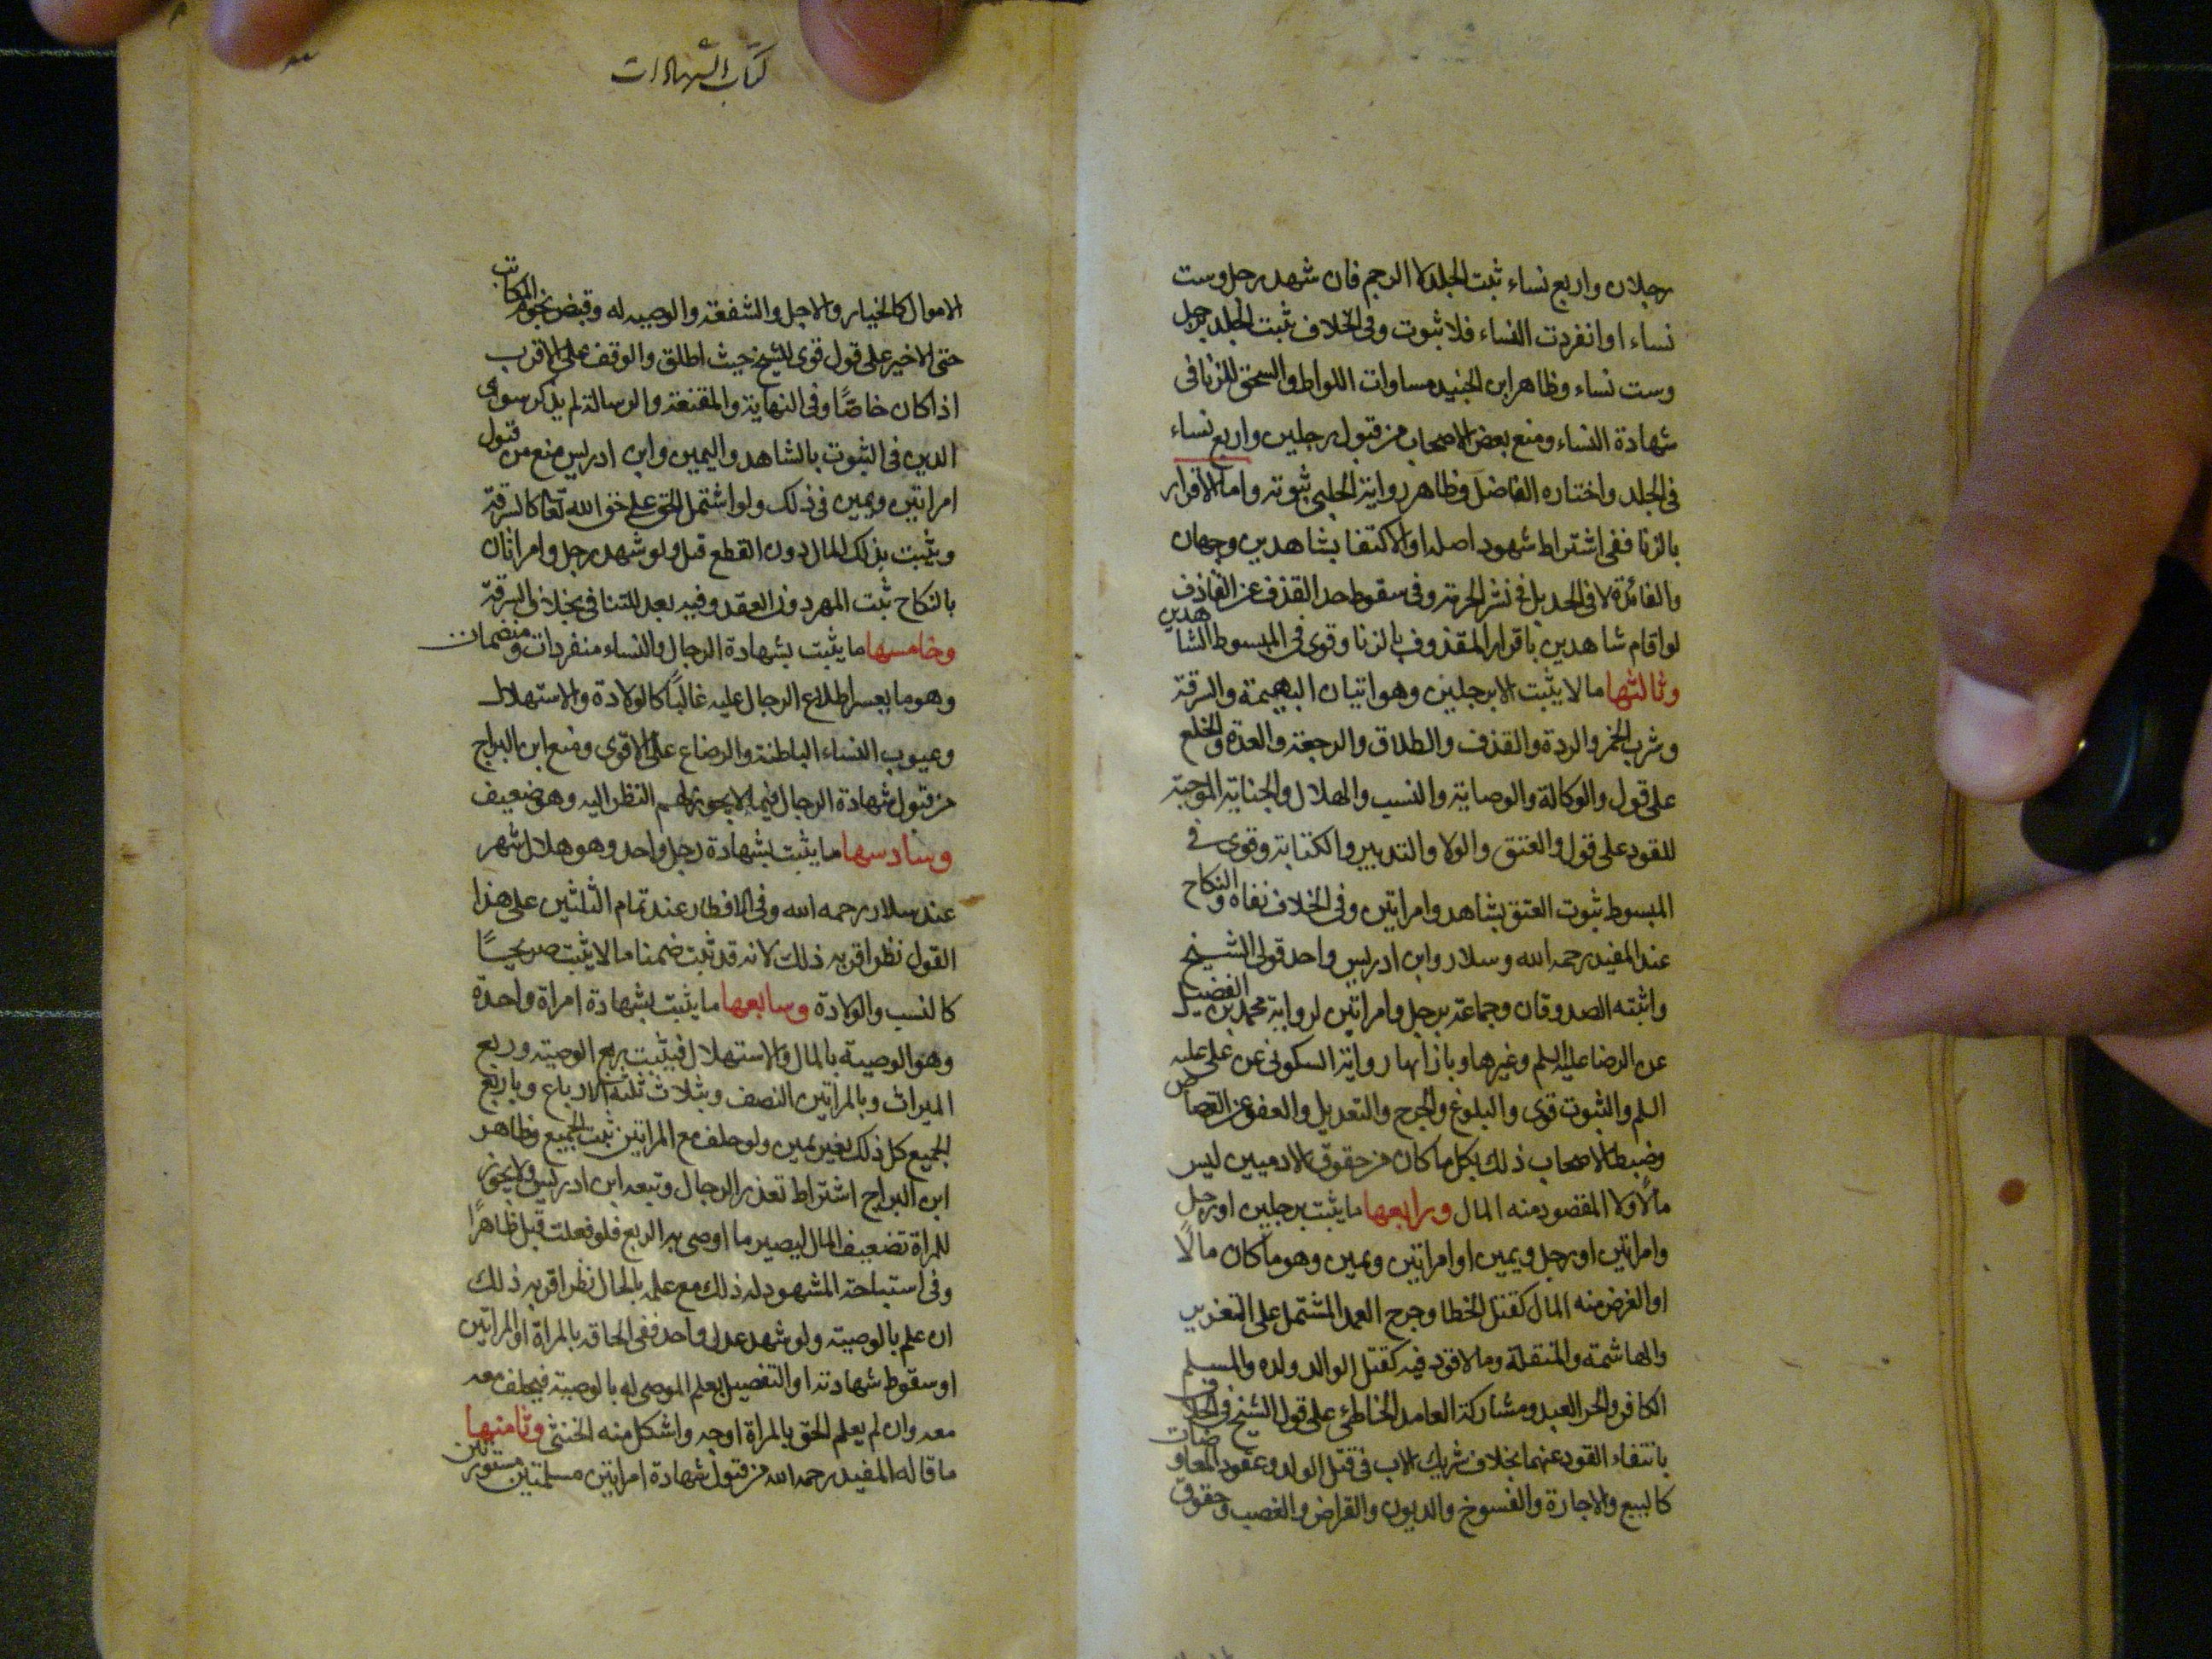 رجلان واربع نساء ثبت الجلد لا الرجم فان شهد رجل وست
نساء او انفردت النساء فلا ثبوت وفي الخلاف يثبت الجلد برجل
وست نساء وظاهر ابن الجنيد مساوات اللواط والسحق للزنا في
شهادة النساء ومنع بعض الاصحاب من قبول رجلين واربع نساء
في الجلد واختاره الفاضل وظاهر رواية الحلبي ثبوته واما الاقرار
بالزنا ففي اشتراط شهود اصله او الاكتفا بشاهدين وجهان
والفائدة لا في الحد بل في نشر الحرمة وفي سقوط حد القذف عن القاذف
لو اقام شاهدين باقرار المقذوف بالزنا وقوى في المبسوط الشاهدين
وثالثها ما لا يثبت الا برجلين وهو اتيان البهيمة والسرقة
وشرب الخمر والردة والقذف والطلاق والرجعة والعدة والخلع
على قول والوكالة والوصاية والنسب والهلال والجناية الموجبة
للقود على قول والعتق والولا والتدبير والكتابة وقوى في
المبسوط ثبوت العتق بشاهد وامراتين وفي الخلاف نفاه والنكاح
عند المفيد رحمه الله وسلار وابن ادريس واحد قولى الشيخ
واثبته الصدوقان وجماعة برجل وامراتين لرواية محمد بن الفضيل
عن الرضا عليه السلم وغيرها وبازائها رواية السكوني عن على عليه
السلم والثبوت قوى والبلوغ والجرح والتعديل والعفو عن القصاص
وضبط الاصحاب ذلك بكل ما كان من حقوق الادميين ليس
مالًا ولا المقصود منه المال ورابعها ما يثبت برجلين او رجل
وامراتين او رجل ويمين او امراتين ويمين وهو ما كان مالًا
او الغرض منه المال كقتل الخطا وجرح العمد المشتمل على التغرير
والهاشمة والمنقلة وما لا قود فيه كقتل الوالد ولده والمسلم
الكافر والحر العبد ومشاركة العامد الخاطئ على قول الشيخ في الخلاف
بانتفاء القود عنهما بخلاف شريك الاب في قتل الولد وعقود المعاوضات
كالبيع والاجارة والفسوخ والديون والقراض والغصب وحقوق
كتاب الشهادات
الاموال كالخيار والاجل والشفعة والوصية له وقبض نجوم المكاتب
حتى الاخير على قول قوى للشيخ حيث اطلق والوقف على الاقرب
اذا كان خاصًا وفي النهاية والمقنعة والرسالة لم يذكر سوى
الدين في الثبوت بالشاهد واليمين وابن ادريس منع من قبول
امراتين ويمين في ذلك ولو اشتمل الحق على حق الله تعا كالسرقة
ويثبت بذلك المال دون القطع قيل ولو شهد رجل وامراتان
بالنكاح ثبت المهر دون العقد وفيه بعد للتنافي بخلاف السرقة
وخامسها ما يثبت بشهادة الرجال والنساء منفردات ومنضمات
وهو ما يعسر اطلاع الرجال عليه غالبًا كالولادة والاستهلال
وعيوب النساء الباطنة والرضاع على الاقوى ومنع ابن البراج
من قبول شهادة الرجال فيما لا يجوز لهم النظر اليه وهو ضعيف
وسادسها ما يثبت بشهادة رجل واحد وهو هلال شهر
عند سلار رحمه الله وفي الافطار عند تمام الثلثين على هذا
القول نظر اقربه ذلك لانه قد ثبت ضمنا ما لا يثبت صريحًا
كالنسب والولادة وسابعها ما يثبت بشهادة امراة واحدة
وهو الوصية بالمال والاستهلال فيثبت ربع الوصية وربع
الميراث وبالمراتين النصف وبثلاث ثلثة الارباع وباربع
الجميع كل ذلك بغير يمين ولو حلف مع المراتين ثبت الجميع وظاهر
ابن البراج اشتراط تعذر الرجال وتبعه ابن ادريس ولا يجوز
للمراة تضعيف المال ليصير ما اوصى به الربع فلو فعلت قبل ظاهرًا
وفي استباحة المشهود له ذلك مع علمه بالحال نظر اقربه ذلك
ان علم بالوصية ولو شهد عدل واحد ففي الحاقه بالمراة او المراتين
او سقوط شهادته او التفصيل بعلم الموصى له بالوصية فيحلف معه
معه وان لم يعلم الحق بالمراة اوجه واشكل منه الخنثى وثامنها
ما قاله المفيد رحمه الله من قبول شهادة امراتين مسلمتين مستورتين